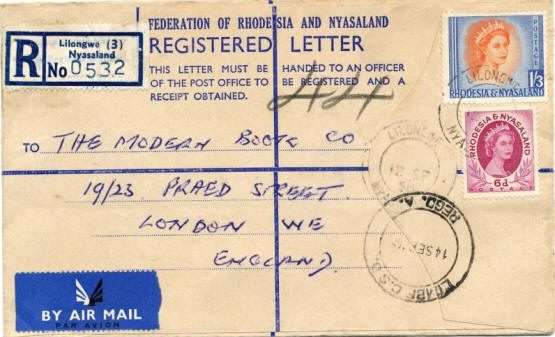 R
Lilongwe (3)
Nyasaland
No 0532
FEDERATION OF RHODESIA AND NYASALAND
REGISTERED LETTER
THIS LETTER MUST BE HANDED TO AN OFFICER
OF THE POST OFFICE TO BE REGISTERED AND A
RECEIPT OBTAINED.
44
POSTAGE
1/3
RHODESIA & NYASALAND
RHODESIA & NYASALAND
6d
TO THE MODERN BOOK CO
19/23 PRAED STREET
LONDON WE
ENGLAND
LILONGWE
REGD. A.
14 SEP
BY AIR MAIL
PAR AVION